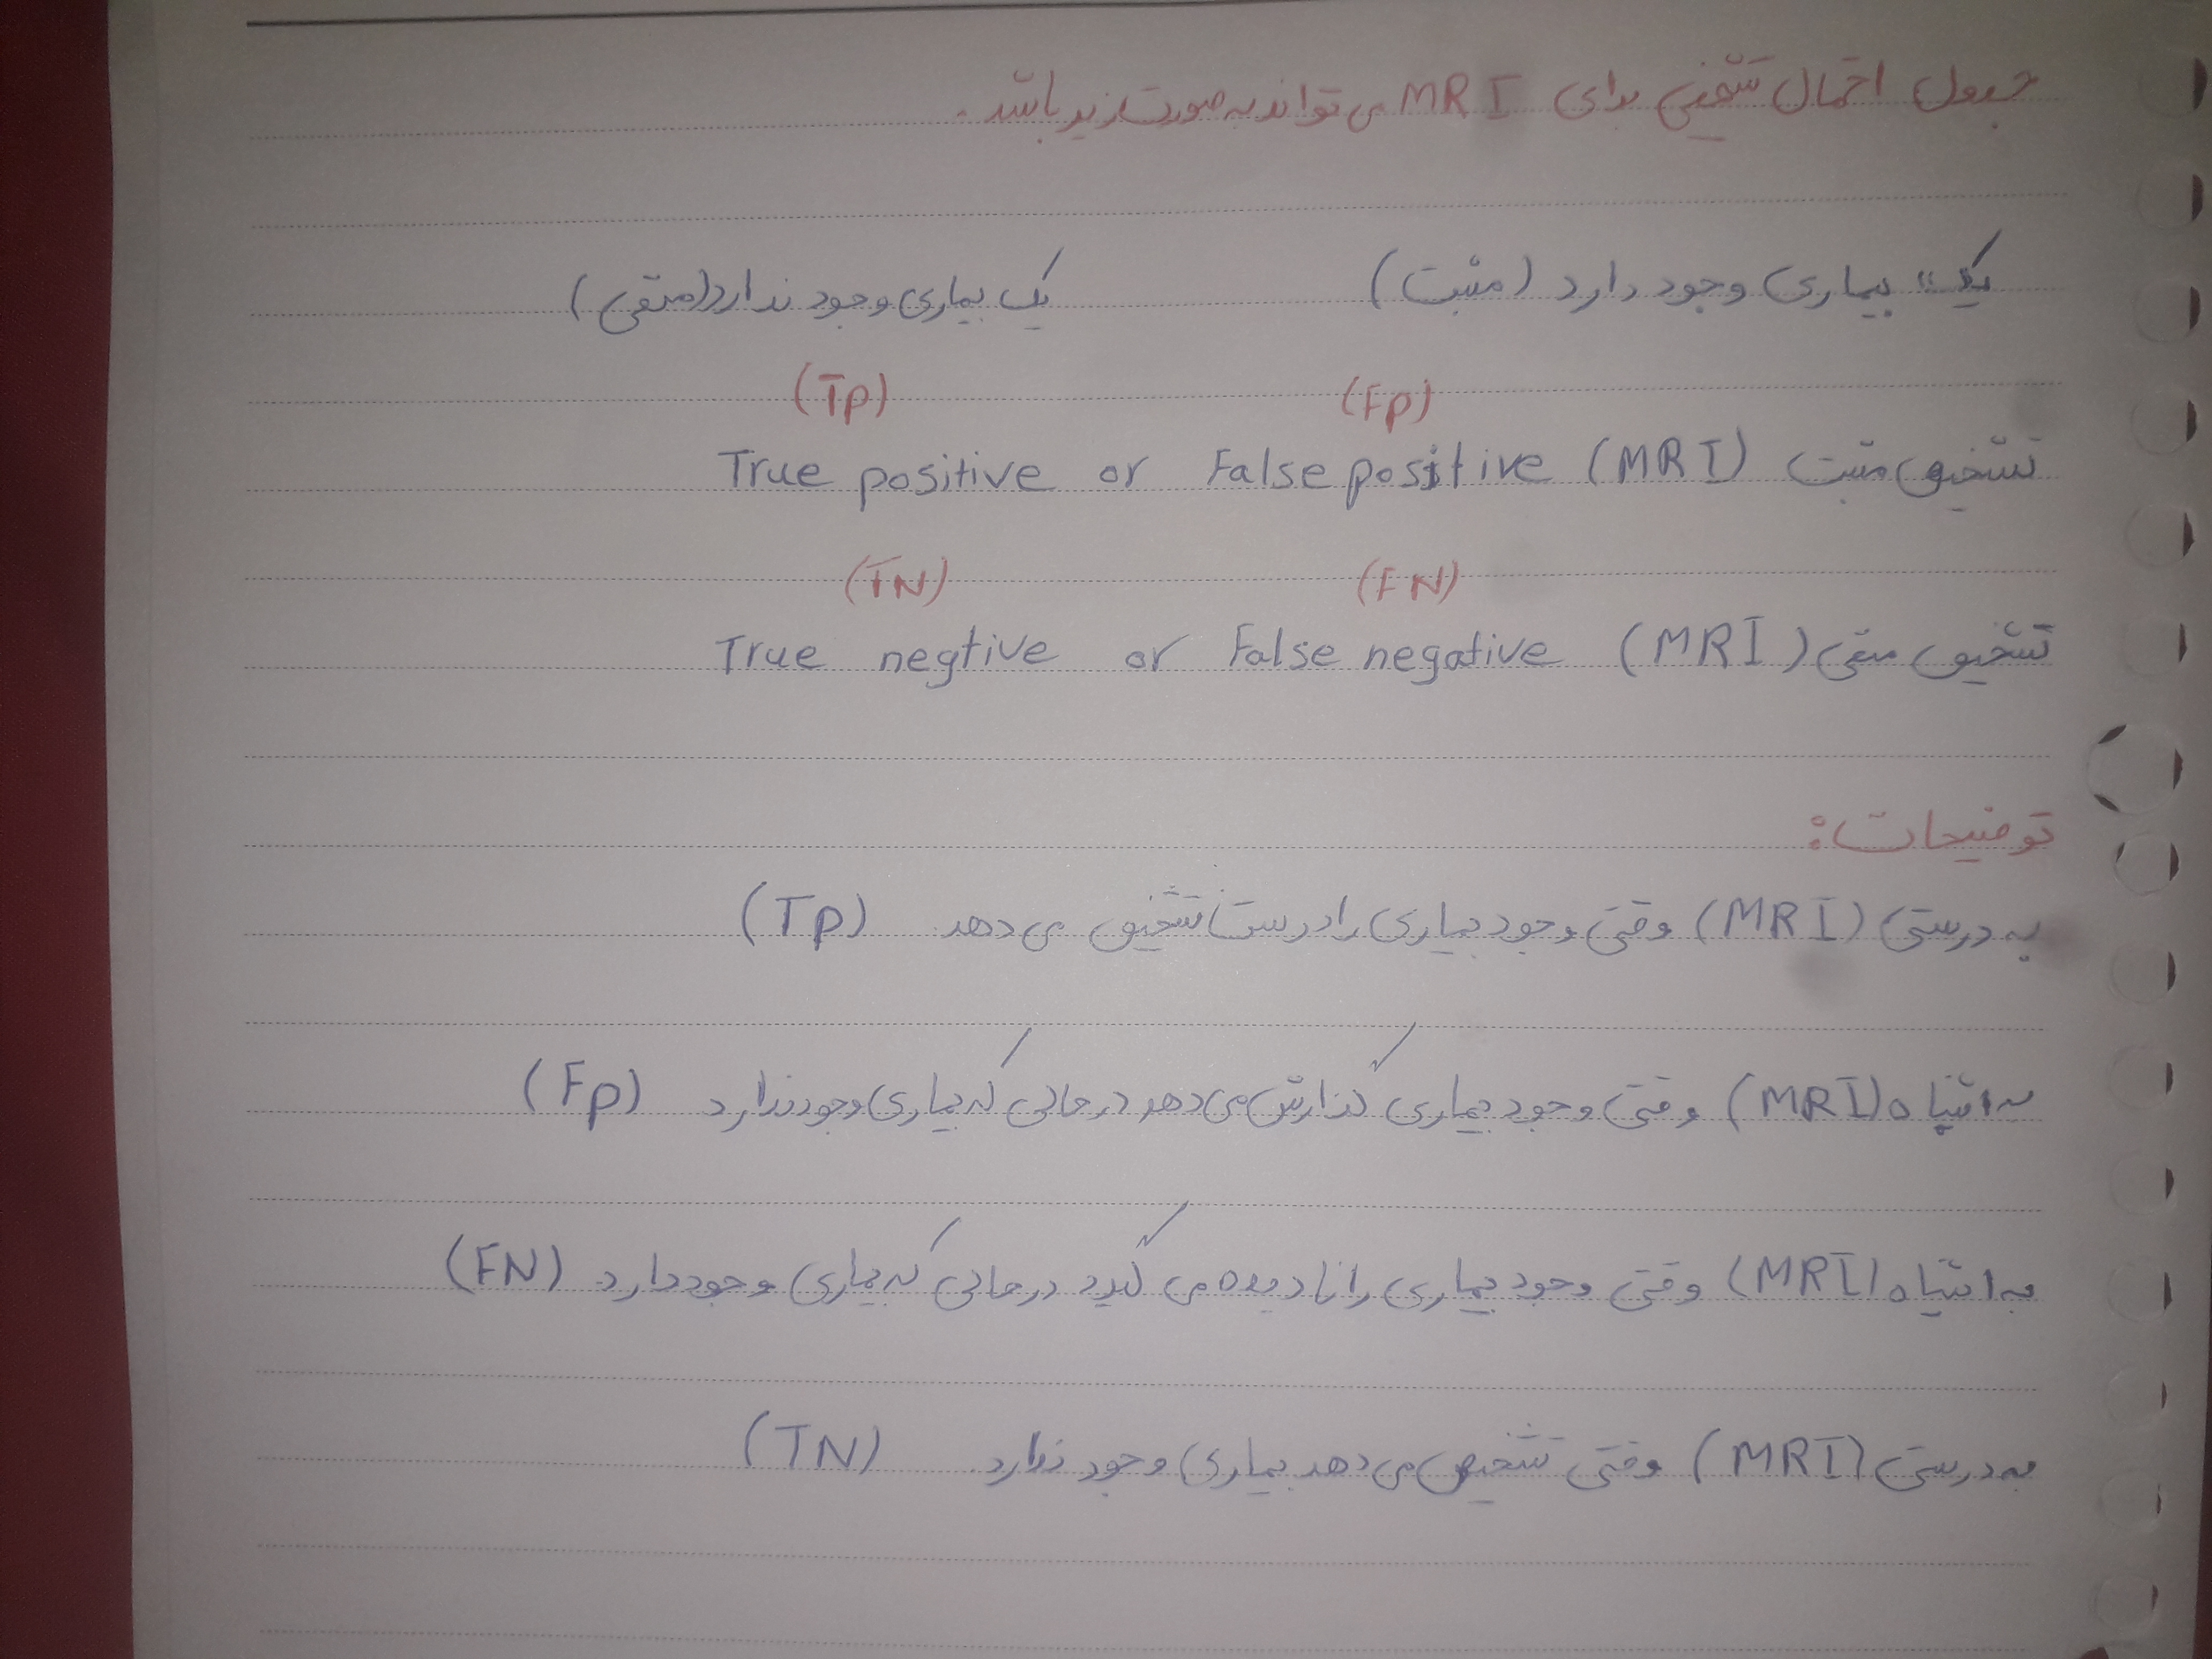 جدول احتمال تشخیص برای MRI می تواند به صورت زیر باشد.
یک بیماری وجود دارد (مثبت) یک بیماری وجود ندارد (منفی)
(FP) (TP)
تشخیص مثبت (MRI) True positive or False positive
(FN) (TN)
تشخیص منفی (MRI) True negtive or False negative
توضیحات:
به درستی (MRI) وقتی وجود بیماری را درست تشخیص می دهد (TP)
به اشتباه (MRI) وقتی وجود بیماری گزارش می دهد در حالی که بیماری وجود ندارد (FP)
به اشتباه (MRI) وقتی وجود بیماری را نادیده می گیرد در حالی که بیماری وجود دارد. (FN)
به درستی (MRI) وقتی تشخیص می دهد بیماری وجود ندارد. (TN)